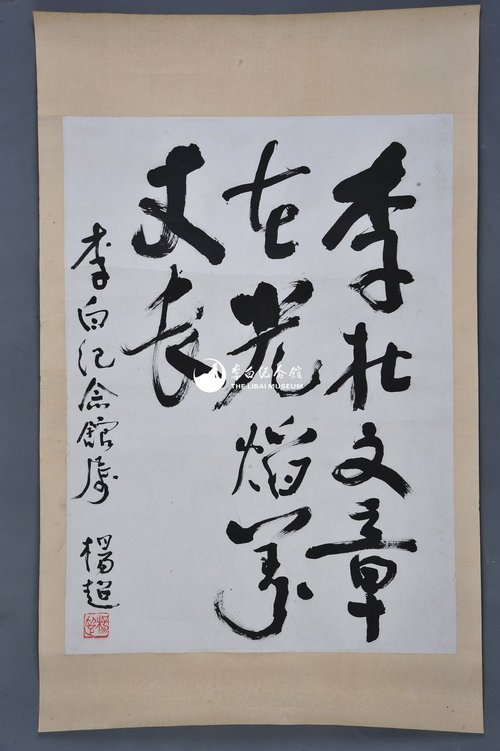 李杜文章
在光焰萬
丈長
李白纪念館属
楊超
李白纪念館
THE LIBAI MUSEUM